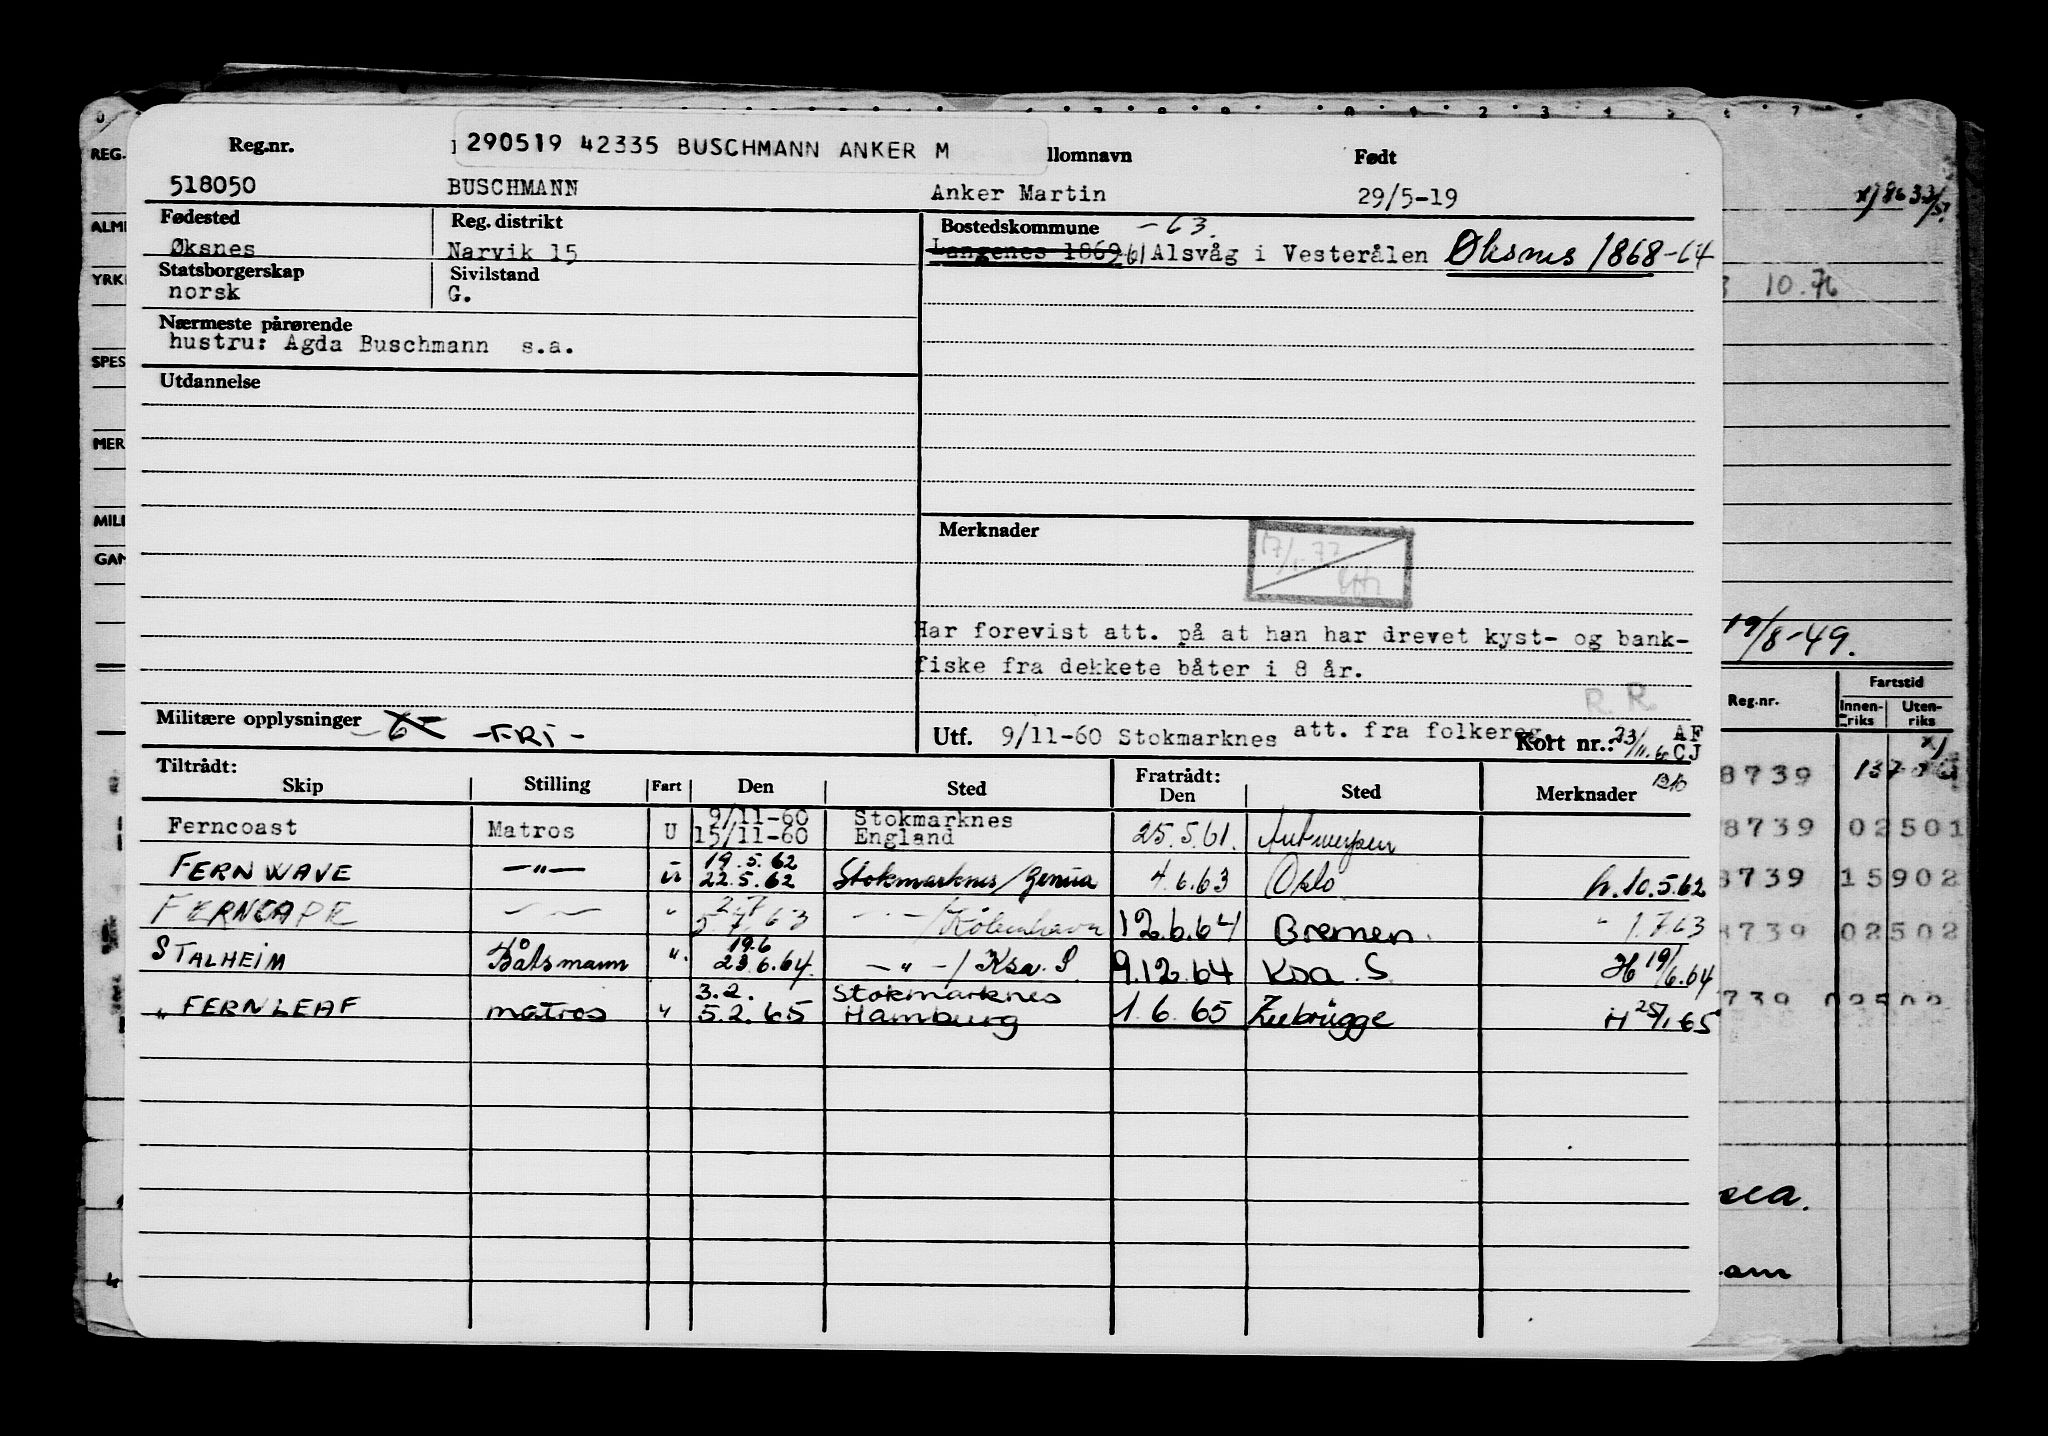 Reg.nr. 290519 42335 BUSCHMANN ANKER M llomnavn Født
518050 BUSCHMANN Anker Martin 29/5-19
Fødested Reg. distrikt Bostedskommune -63.
Øksnes Narvik 15 Langenes 1869 61 Alsvåg i Vesterålen Øksnes 1868-64
Statsborgerskap Sivilstand
norsk G.
Nærmeste pårørende
hustru: Agda Buschmann s.a.
Utdannelse
Merknader
Har forevist att. på at han har drevet kyst- og bank-
fiske fra dekkete båter i 8 år.
R.R.
Militære opplysninger -FRI-
Utf. 9/11-60 Stokmarknes att. fra folkereg. Kort nr.: 23/11.60 AF
CJ
Tiltrådt: Fratrådt:
Skip Stilling Fart Den Sted Den Sted Merknader
9/11-60 Stokmarknes
Ferncoast Matros U 15/11-60 England 25.5.61. Antwerpen
19.5.62
FERNWAVE -"- U 22.5.62 Stokmarknes/Genua 4.6.63 Oslo h.10.5.62
2.7
FERNCAPE " 5.7.63 -"-/København 12.6.64 Bremen. " 1.7.63
19.6
STALHEIM Båtsmann " 23.6.64. -"-/Ksa. S 9.12.64 Ksa. S H 19/6.64
3.2. Stokmarknes
" FERNLEAF matros " 5.2.65 Hamburg 1.6.65 Zeebrügge H 25/1.65
REG.
ALM
YRK
SPES
MER
MILI
GAN
10.76
19/8-49.
Reg.nr. Fartstid
Innen-riks Uten-riks
8739 137
8739 02501
8739 15902
8739 02502
739 02502